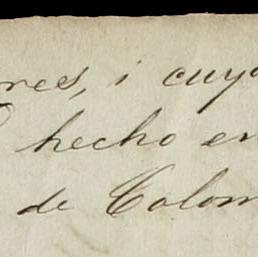 res, i cuyo
hecho en
de Colom